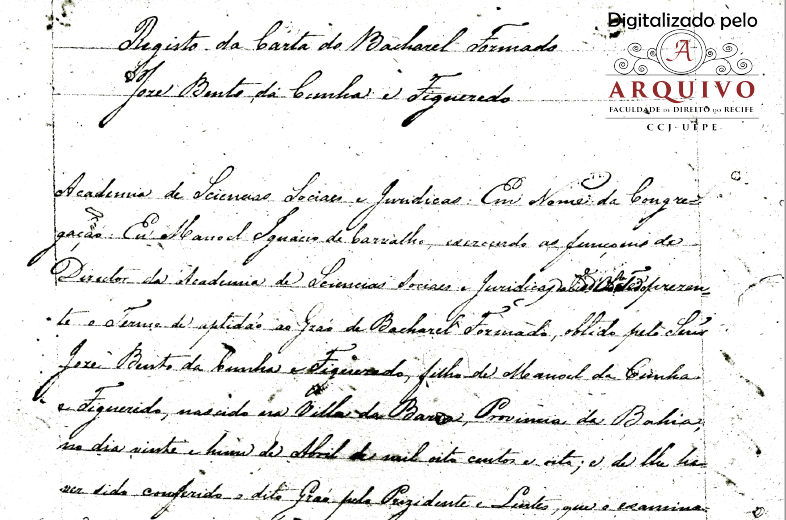 Digitalizado pelo
A
ARQUIVO
FACULDADE DE DIREITO DO RECIFE
CCJ-UFPE
Registo da Carta do Bacharel Formado
José Bento da Cunha e Figueredo
Academia de Sciencias Sociaes e Juridicas. Em Nome da Congre-
gação. Eu Manoel Ignacio de Carvalho, exercendo as funçoens de
Director da Academia de Sciencias Sociaes e Juridicas prezen-
te o Termo de aptidão ao Grao de Bacharel Formado, obtido pelo Senr
José Bento da Cunha e Figueredo, filho de Manoel da Cunha
e Figueredo, nascido na Villa da Barra, Provincia da Bahia
no dia vinte e hum de Abril de mil oito centos e oito; e de lhe ha-
ver sido conferido o dito Grao pelo Prezidente e Lentes, que o examina-